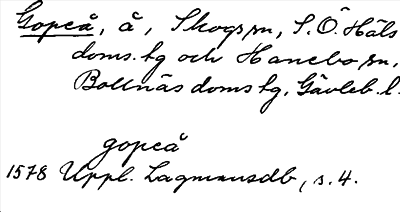 Gopeå, å, Skogs sn, S.Ö. Häls
doms. tg och Hanebo sn,
Bollnäs doms tg. Gävleb. l.
gopeå
1578 Uppl. Lagmansdb, s. 4.